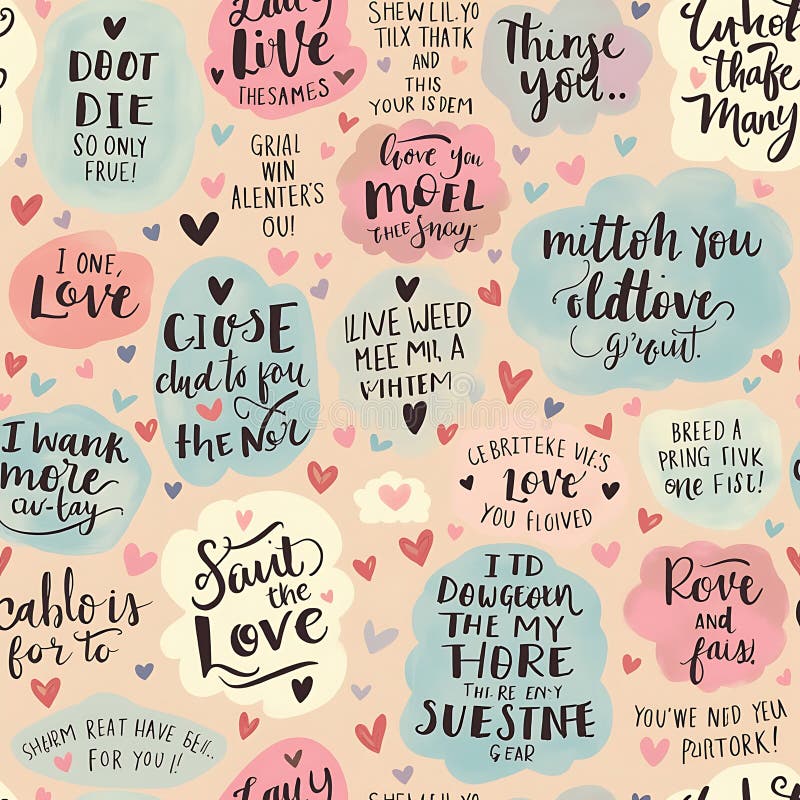 DOOT
DIE
SO ONLY
FRUE!
Lauy
Live
THESAMES
SHEW LIL.YO
TILX THATK
AND
THIS
YOUR IS DEM
Thinse
you..
thafe
Many
GRIAL
WIN
ALENTER'S
OU!
love you
MOEL
THEE Snoay
mittoh you
oldtlove
I ONE,
Love
CIUSE
clud to fou
the Nor
ILIVE WEED
MEE MIL A
VIHTEM
I wank
more
cw-tay
CEBRITEKE VIE,S
Love
YOU FLOIVED
BREED A
PRING TIVK
ONE FIST!
Sauit
the
Love
I TD
DOWGEORN
THE MY
HORE
THI. RE ENY
SUESTNFE
GEAR
Rove
AND
fais!
cablo is
for to
SHBRM REAT HAVE BEI..
FOR YOU I!
YOU'WE NED YEU
PURTORK!
Lauy
SHEW LIL.YO